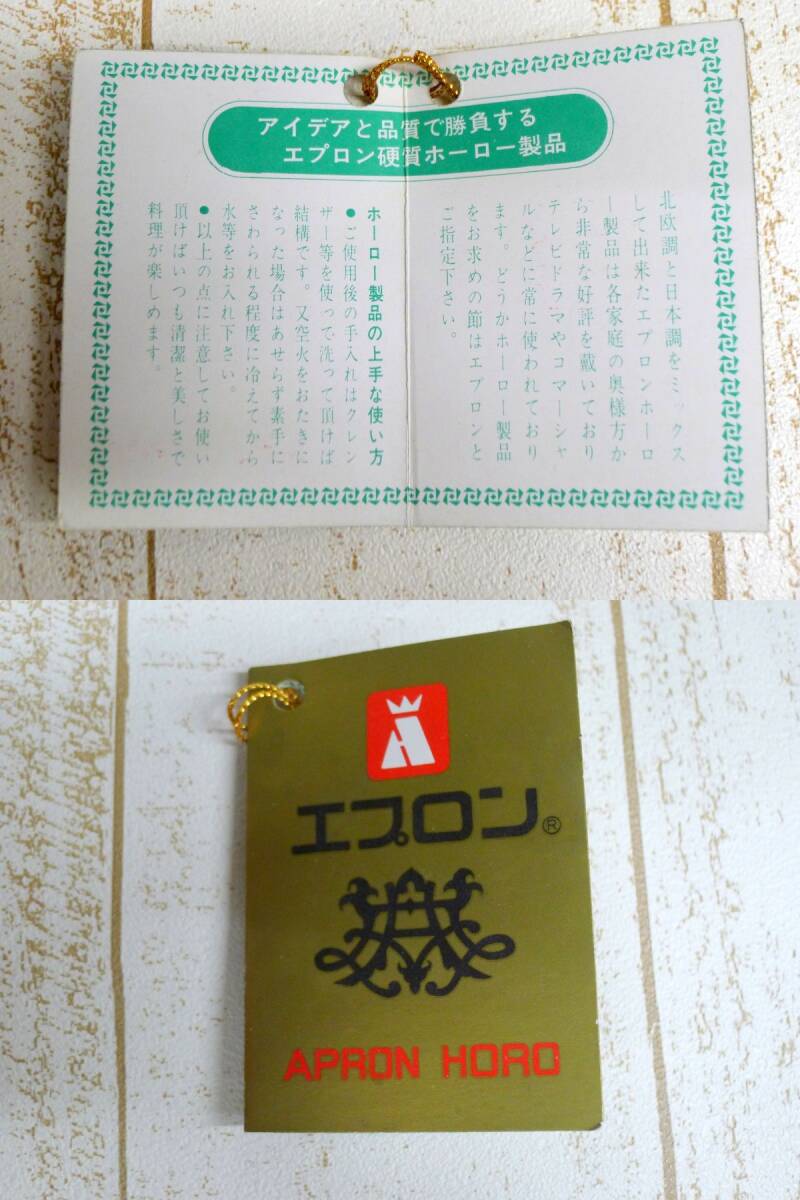 アイデアと品質で勝負する
エプロン硬質ホーロー製品
北欧調と日本調をミックス
して出来たエプロンホーロ
ー製品は各家庭の奥様方か
ら非常な好評を戴いており
テレビドラマやコマーシャ
ルなどに常に使われており
ます。どうかホーロー製品
をお求めの節はエプロンと
ご指定下さい。
ホーロー製品の上手な使い方
●ご使用後の手入れはクレン
ザー等を使って洗って頂けば
結構です。又空火をおたきに
なった場合はあせらず素手に
さわられる程度に冷えてから
水等をお入れ下さい。
●以上の点に注意してお使い
頂けばいつも清潔と美しさで
料理が楽しめます。
エプロン®
APRON HORO